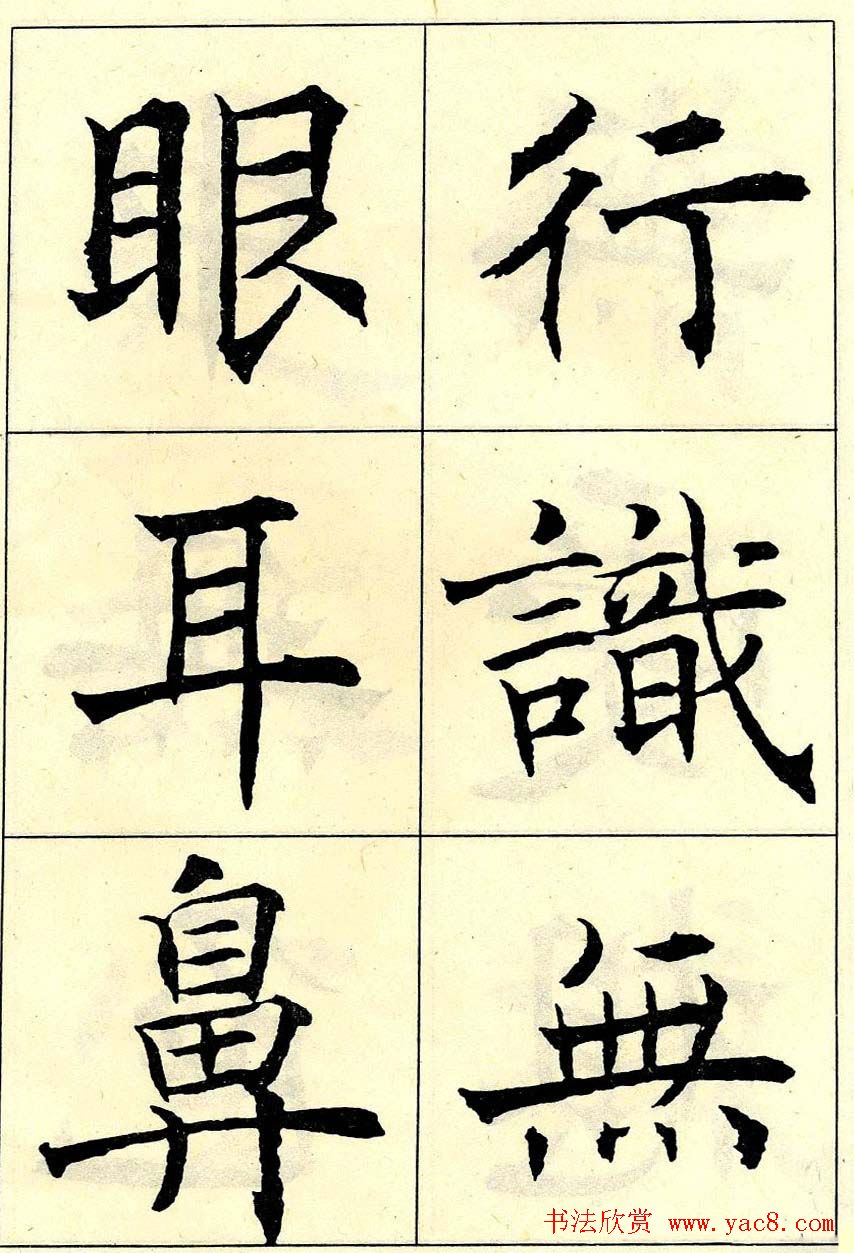 行識無
眼耳鼻
书法欣赏 www.yac8.com